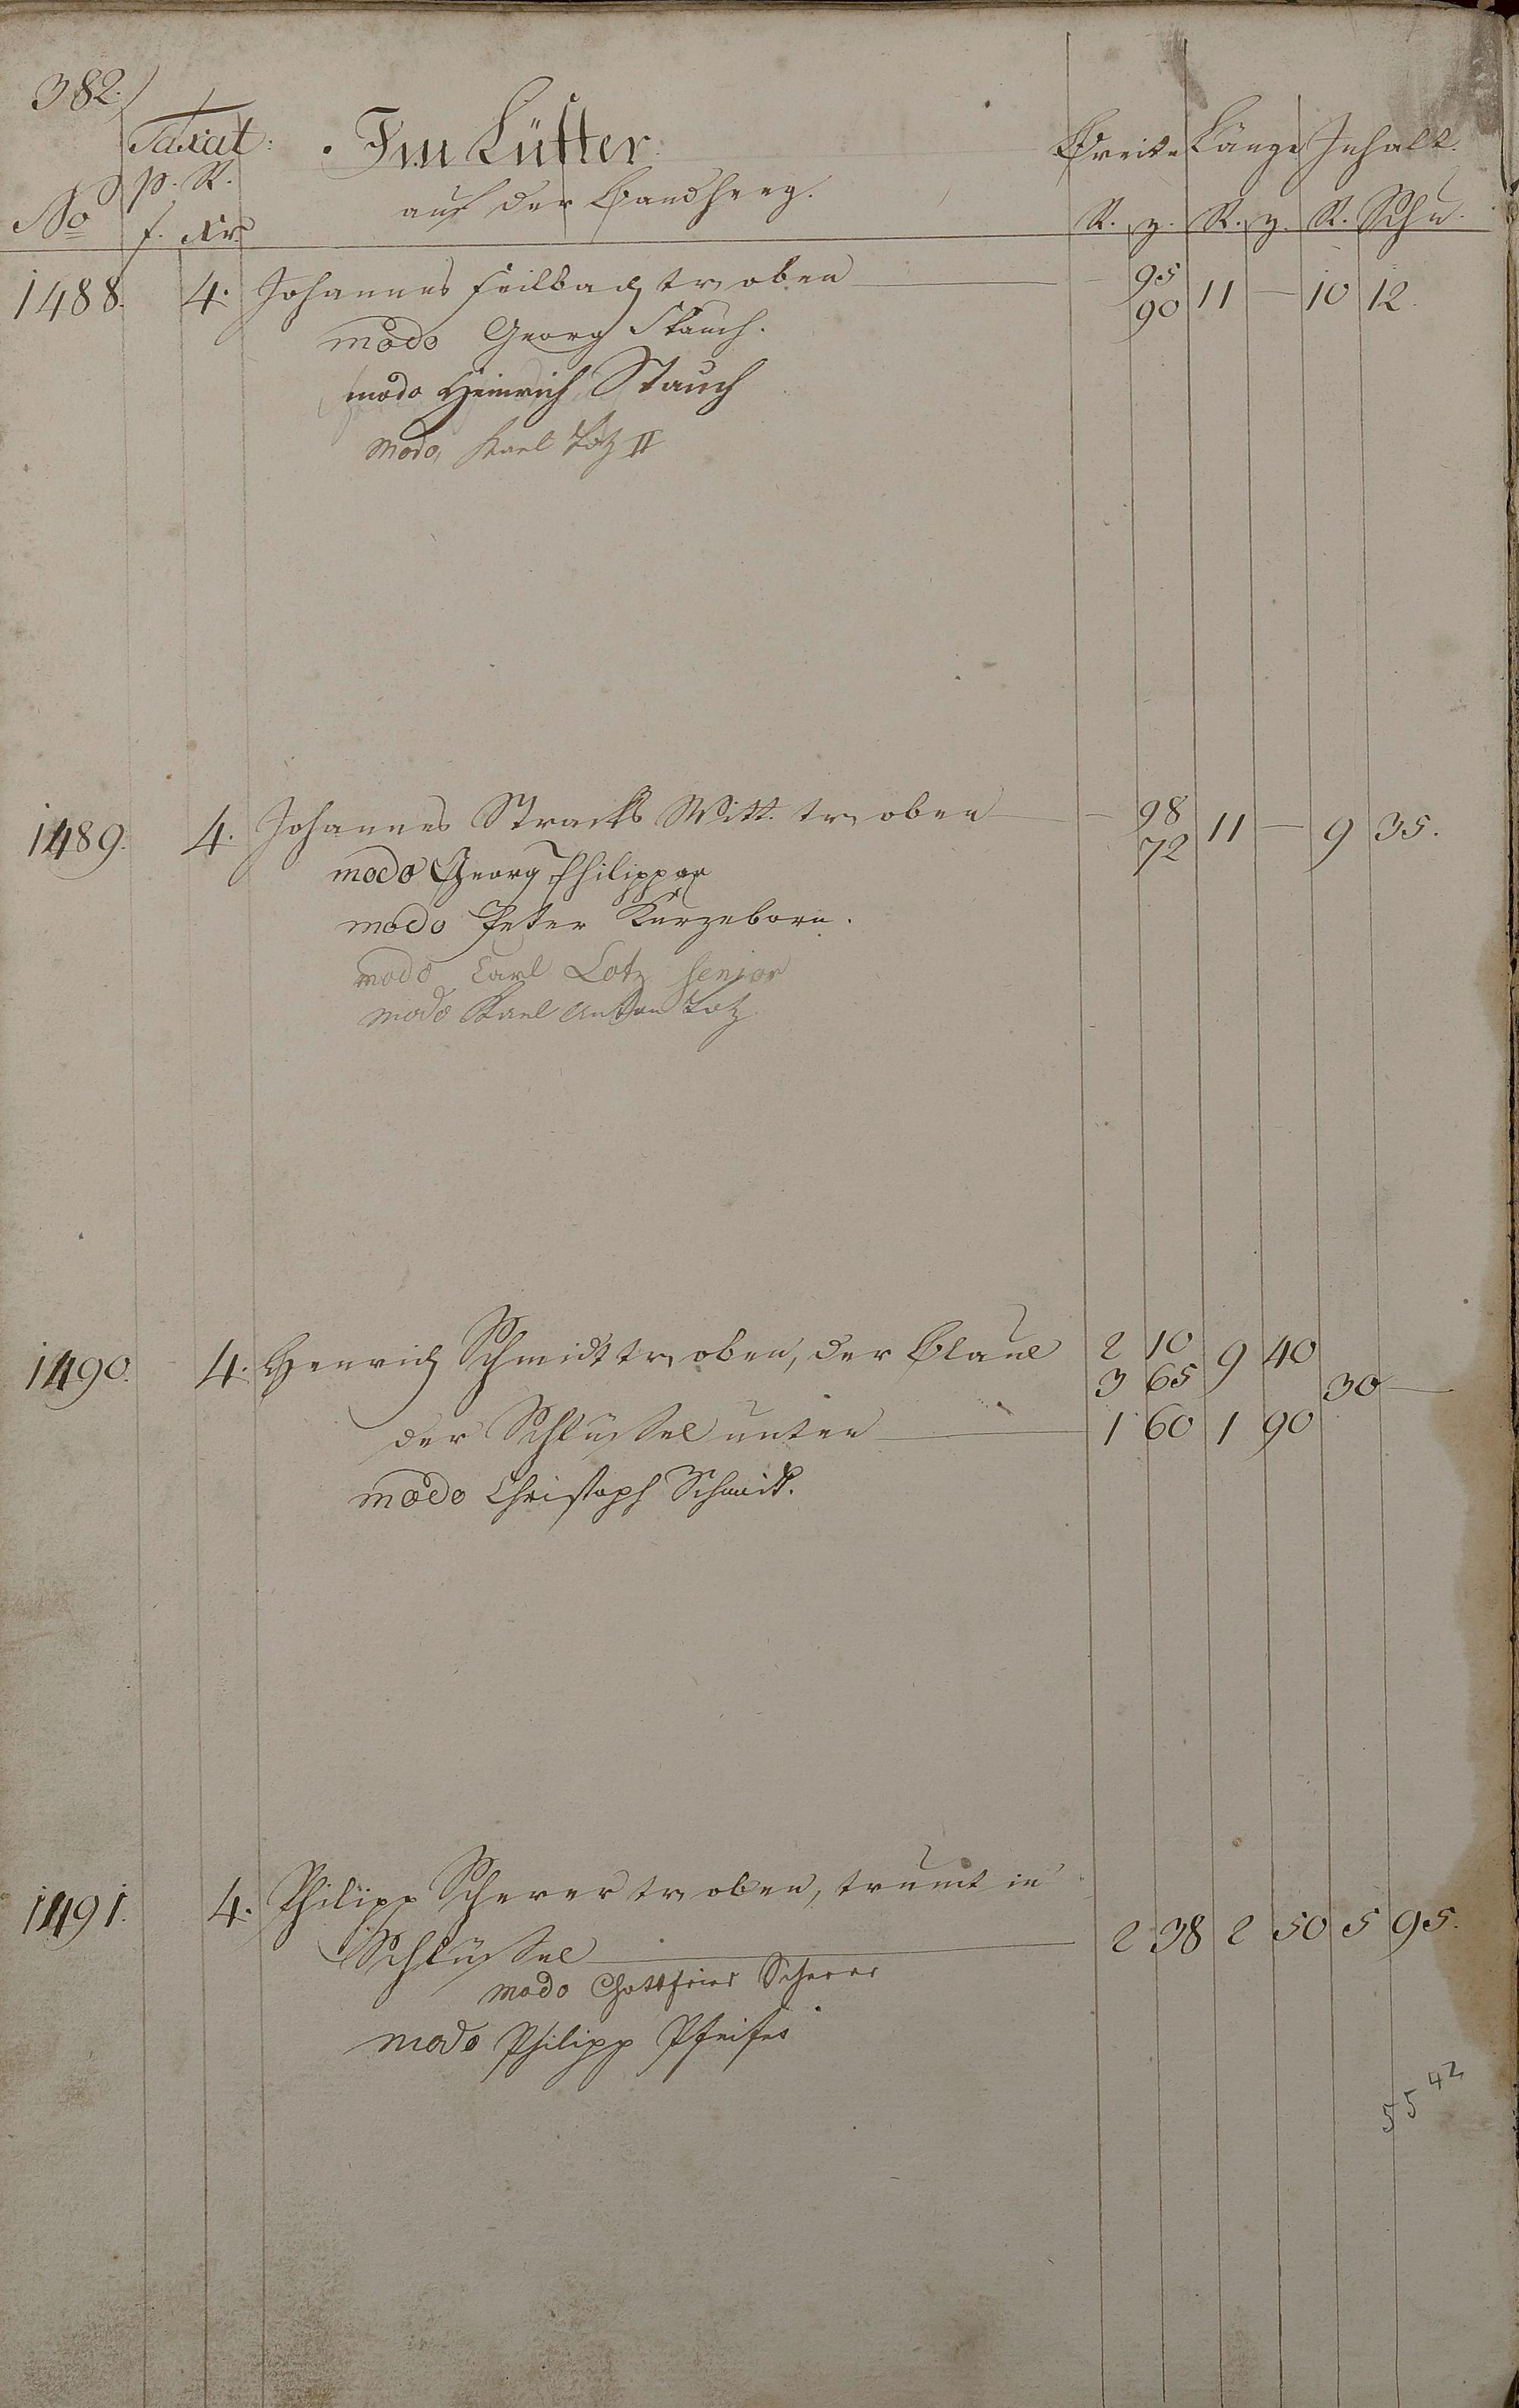 382.
Taxat: Im Lütter Breite Länge Inhalt.
p. R. auf der
No f. xr. R. z. R. z. R. Schu.
1488. 4. Johannes Feilbach tr. oben — 95 11 — 10 12.
90
modo Georg Stauch.
modo Heinrich Stauch
modo, Karl Lotz II
1489. 4. Johannes Stracks Witt. tr. oben — 98 11 — 9 35.
72
modo Georg Philippar
modo Peter Kurzeborn.
modo Carl Lotz senior
modo Karl Anton Lotz.
1490. 4. Henrich Schmidt tr. oben, der Blaul 2 10 9 40
3 65 30 —
der Schlüssel unten — 1 60 1 90
modo Christoph Schmidt.
1491. 4. Philipp Scherer tr. oben, trumt in
Schlüssel — 2 38 2 50 5 95.
modo Gottfried Scherer
modo Philipp Pfeifer
55 42